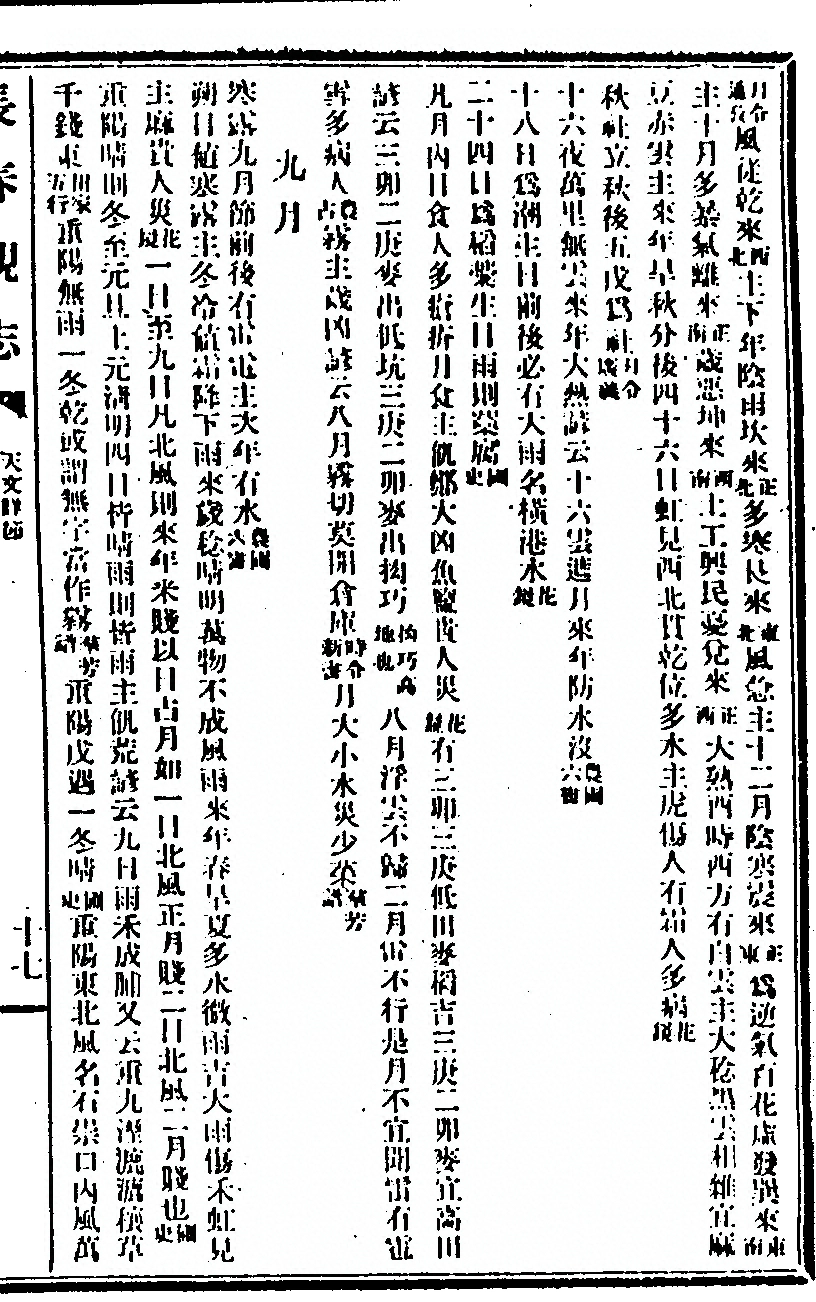 月令通攷風從乾來西北主下年陰雨坎來正北多寒艮來東北風急主十二月陰寒震來正東爲逆氣百花虛發巽來東南
主十月多暴氣離來正南歲惡坤來西南土工興民憂兌來正西大熟酉時西方有白雲主大稔黑雲相雜宜麻
豆赤雲主來年旱秋分後四十六日虹見西北貫乾位多水主虎傷人有霜人多病花鏡
秋社立秋後五戊爲社月令廣義
十六夜萬里無雲來年大熱諺云十六雲遮月來年防水沒農圃六書
十八日爲潮生日前後必有大雨名橫港水花鏡
二十四日爲稻藁生日雨則藁腐國史
凡月內日食人多瘡疥月食主飢鄉大凶魚鹽貴人災花鏡有三卯三庚低田麥稻吉三庚二卯麥宜高田
諺云三卯二庚麥出低坑三庚二卯麥出拗巧拗巧高地也八月浮雲不歸二月雷不行是月不宜聞雷有電
雷多病人農占霧主歲凶諺云八月霧切莫開倉庫時令新書月大小水災少菜羣芳譜
九月
寒露九月節前後有雷電主次年有水農圃六書
朔日値寒露主冬冷値霜降下雨來歲稔晴明萬物不成風雨來年春旱夏多水微雨吉大雨傷禾虹見
主麻貴人災花鏡一日至九日凡北風則來年米賤以日占月如一日北風正月賤二日北風二月賤也國史
重陽晴則冬至元旦上元淸明四日皆晴雨則皆雨主飢荒諺云九日雨禾成脯又云重九溼漉漉穰草
千錢束田家五行重陽無雨一冬乾或謂無字當作霧羣芳譜重陽戊遇一冬晴國史重陽東北風名石崇口內風萬
長 志 天文 十七